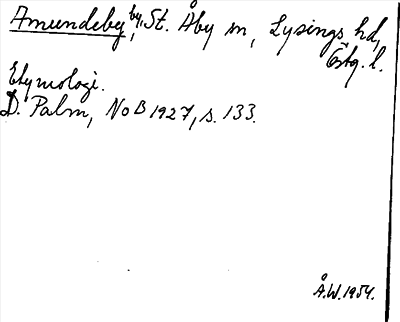 Amundeby, by, St. Åby sn, Lysings hd,
Östg. l.
Etymologi.
D. Palm, NoB 1927, s. 133.
Å.W. 1954.